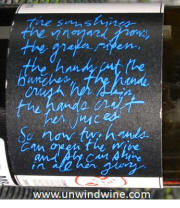 The sun shines
the vineyard grows
the grapes ripen.
the hands cut the
bunches, the hands
crush her skin,
the hands craft
her juices
So now two hands
can open the wine
and she can shine
in all her glory.
www.unwindwine.com